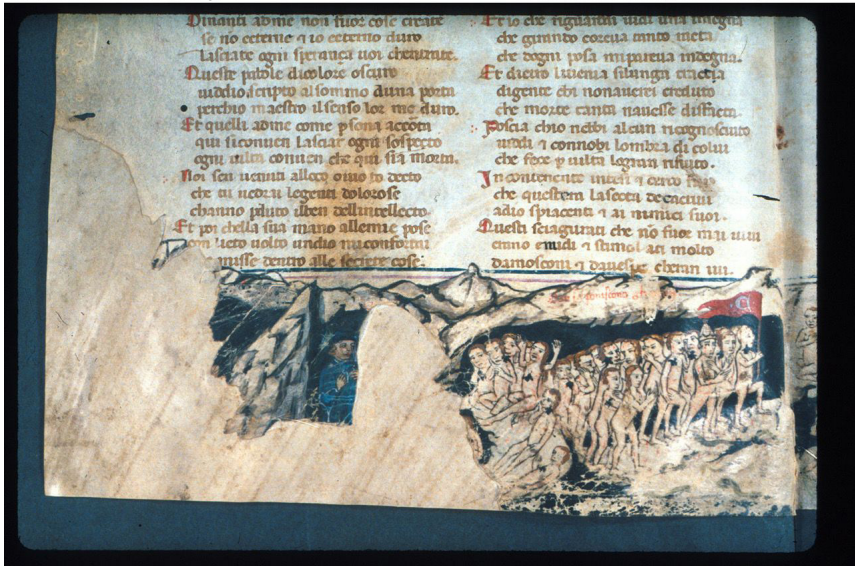 Dinanti adme non fuor cose create
se nō eterne ⁊ io eterno duro
lasciate ogni speranca uoi chentrate.
Queste parole dicolore oscuro
uiddio scripto alsommo duna porta
perchio maestro ilsenso lor me duro.
Et quelli adme come psona accorta
qui siconuien lasciar ogni sospecto
ogni uilta conuien che qui sia morta.
Noi sen uenuti alloco ouio to decto
che tu uedrai legenti dolorose
channo pduto ilben dellintellecto
Et poi chella sua mano allemie pose
con lieto uolto undio mi confortai
misse dentro alle secrete cose.
Et io che riguardai uidi una insegna
che girando correua tanto ratta
che dogni posa mi pareua indegna.
Et dietro liuenia silunga tracta
digente chi nonauerei creduto
che morte tanta nauesse disfacta.
Poscia chio nebbi alcun ricognosciuto
uiddi ⁊ connobi lombra di colui
che fece p uilta logran rifiuto.
Incontenente intesi ⁊ certo fui
che questera lasecta de cactiui
adio spiacenti ⁊ ai nimici suoi.
Questi sciagurati che nō fuor mai uiui
erano nudi ⁊ stimolati molto
damosconi ⁊ dauespe cheran iui.